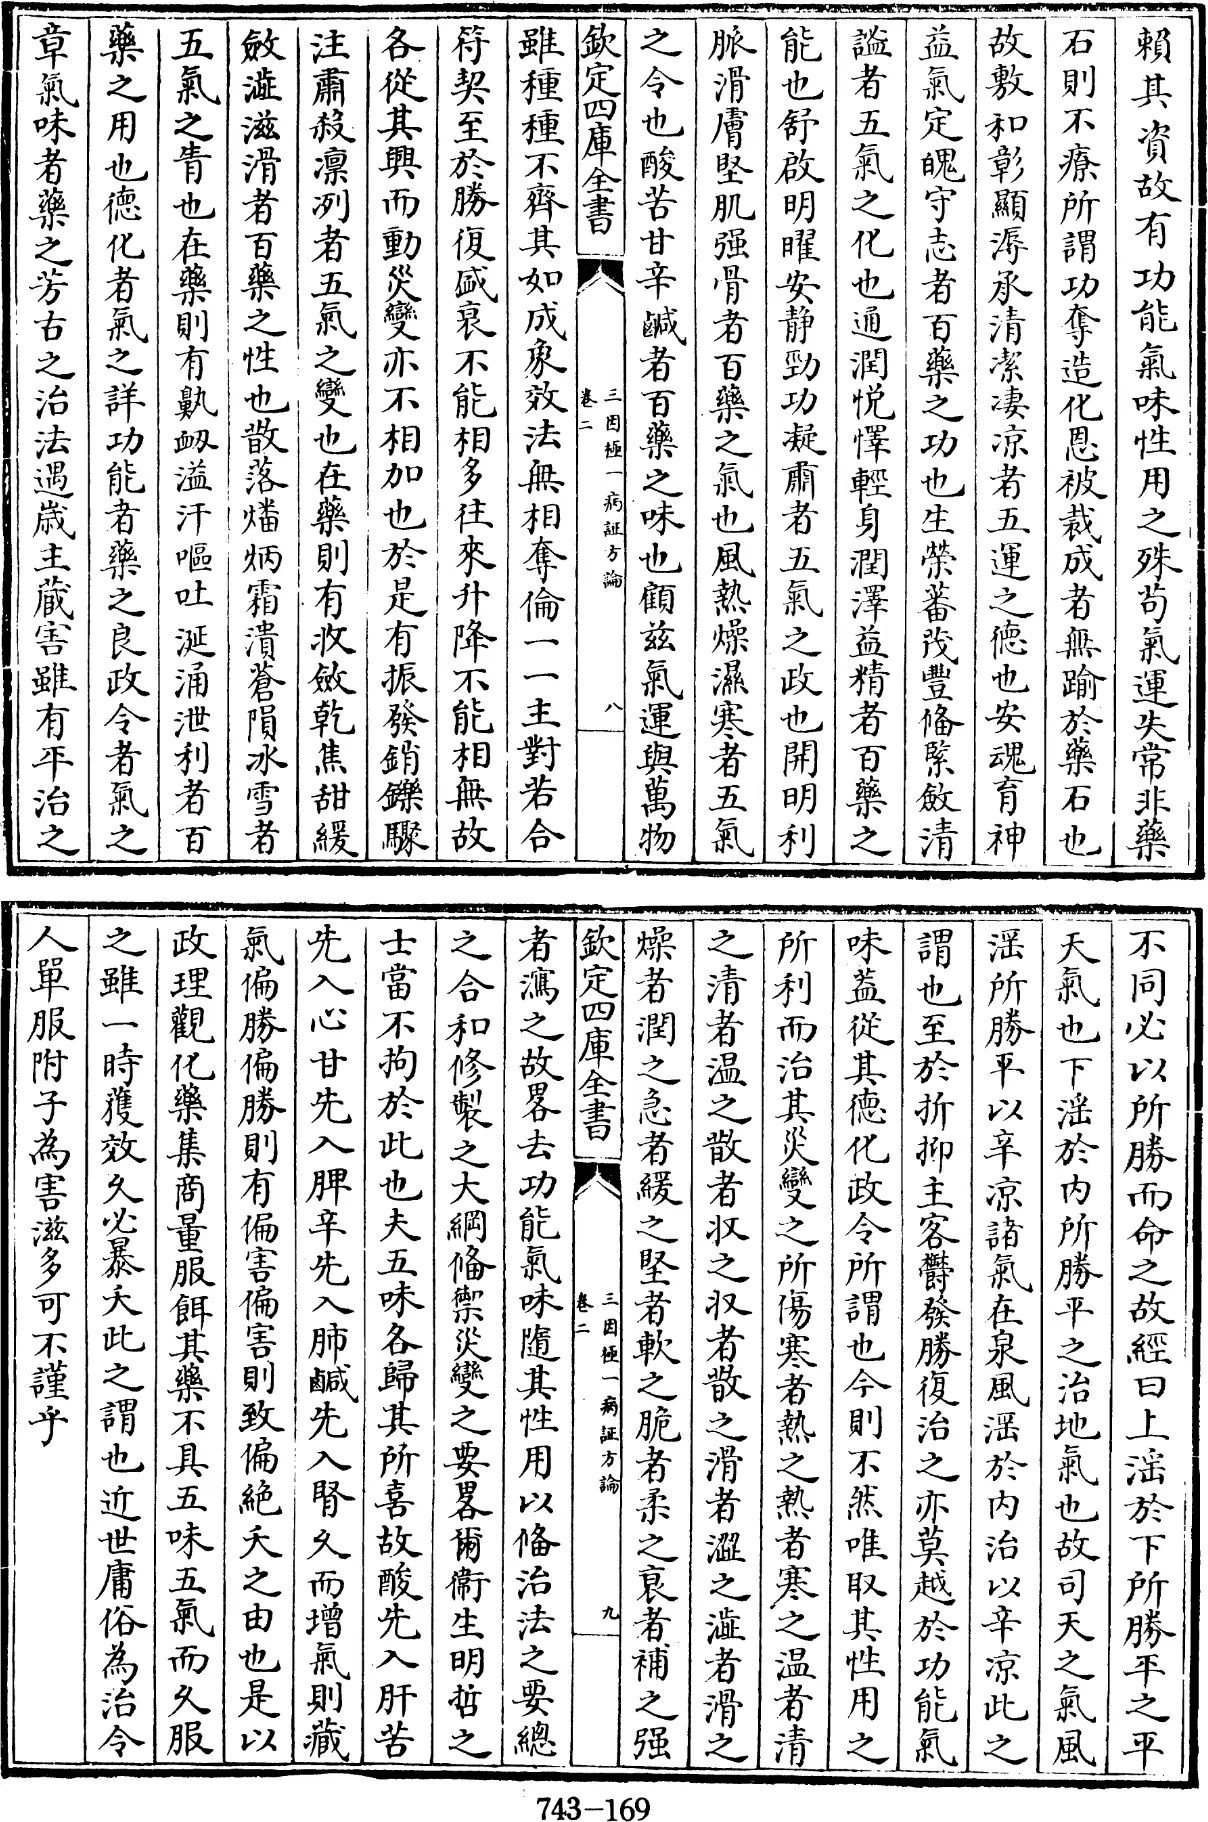 賴其資故有功能氣味性用之殊茍氣運失常非藥
石則不療所謂功奪造化恩被裁成者無踰於藥石也
故敷和彰顯溽承清潔凄凉者五運之德也安魂育神
益氣定魄守志者百藥之功也生榮蕃茂豐俻緊斂清
謐者五氣之化也通潤悅懌輕身潤澤益精者百藥之
能也舒啟明曜安静勁功凝肅者五氣之政也開明利
脈滑膚堅肌强骨者百藥之氣也風熱燥濕寒者五氣
之令也酸苦甘辛鹹者百藥之味也顧兹氣運與萬物
欽定四庫全書
三因極一病証方論
卷二
八
雖種種不齊其如成象效法無相奪倫一一主對若合
符契至於勝復盛衰不能相多往來升降不能相無故
各從其興而動災變亦不相加也於是有振發銷鑠驟
注肅殺凛冽者五氣之變也在藥則有收斂乾焦甜緩
斂澁滋滑者百藥之性也散落燔焫霜潰蒼隕冰雪者
五氣之眚也在藥則有鼽衂溢汗嘔吐涎涌泄利者百
藥之用也德化者氣之詳功能者藥之良政令者氣之
章氣味者藥之芳古之治法遇歲主藏害雖有平治之
不同必以所勝而命之故經曰上滛於下所勝平之平
天氣也下滛於内所勝平之治地氣也故司天之氣風
滛所勝平以辛凉諸氣在泉風滛於内治以辛凉此之
謂也至於折抑主客鬱發勝復治之亦莫越於功能氣
味葢從其德化政令所謂也今則不然唯取其性用之
所利而治其災變之所傷寒者熱之熱者寒之温者清
之清者温之散者收之收者散之滑者澀之澁者滑之
燥者潤之急者緩之堅者軟之脆者柔之衰者補之强
欽定四庫全書
三因極一病証方論
卷二
九
者瀉之故畧去功能氣味隨其性用以俻治法之要總
之合和修製之大綱俻禦災變之要畧爾衛生明哲之
士當不拘於此也夫五味各歸其所喜故酸先入肝苦
先入心甘先入脾辛先入肺鹹先入腎久而增氣則藏
氣偏勝偏勝則有偏害偏害則致偏絶夭之由也是以
政理觀化藥集商量服餌其藥不具五味五氣而久服
之雖一時獲效久必暴夭此之謂也近世庸俗為治令
人單服附子為害滋多可不謹乎
743-169